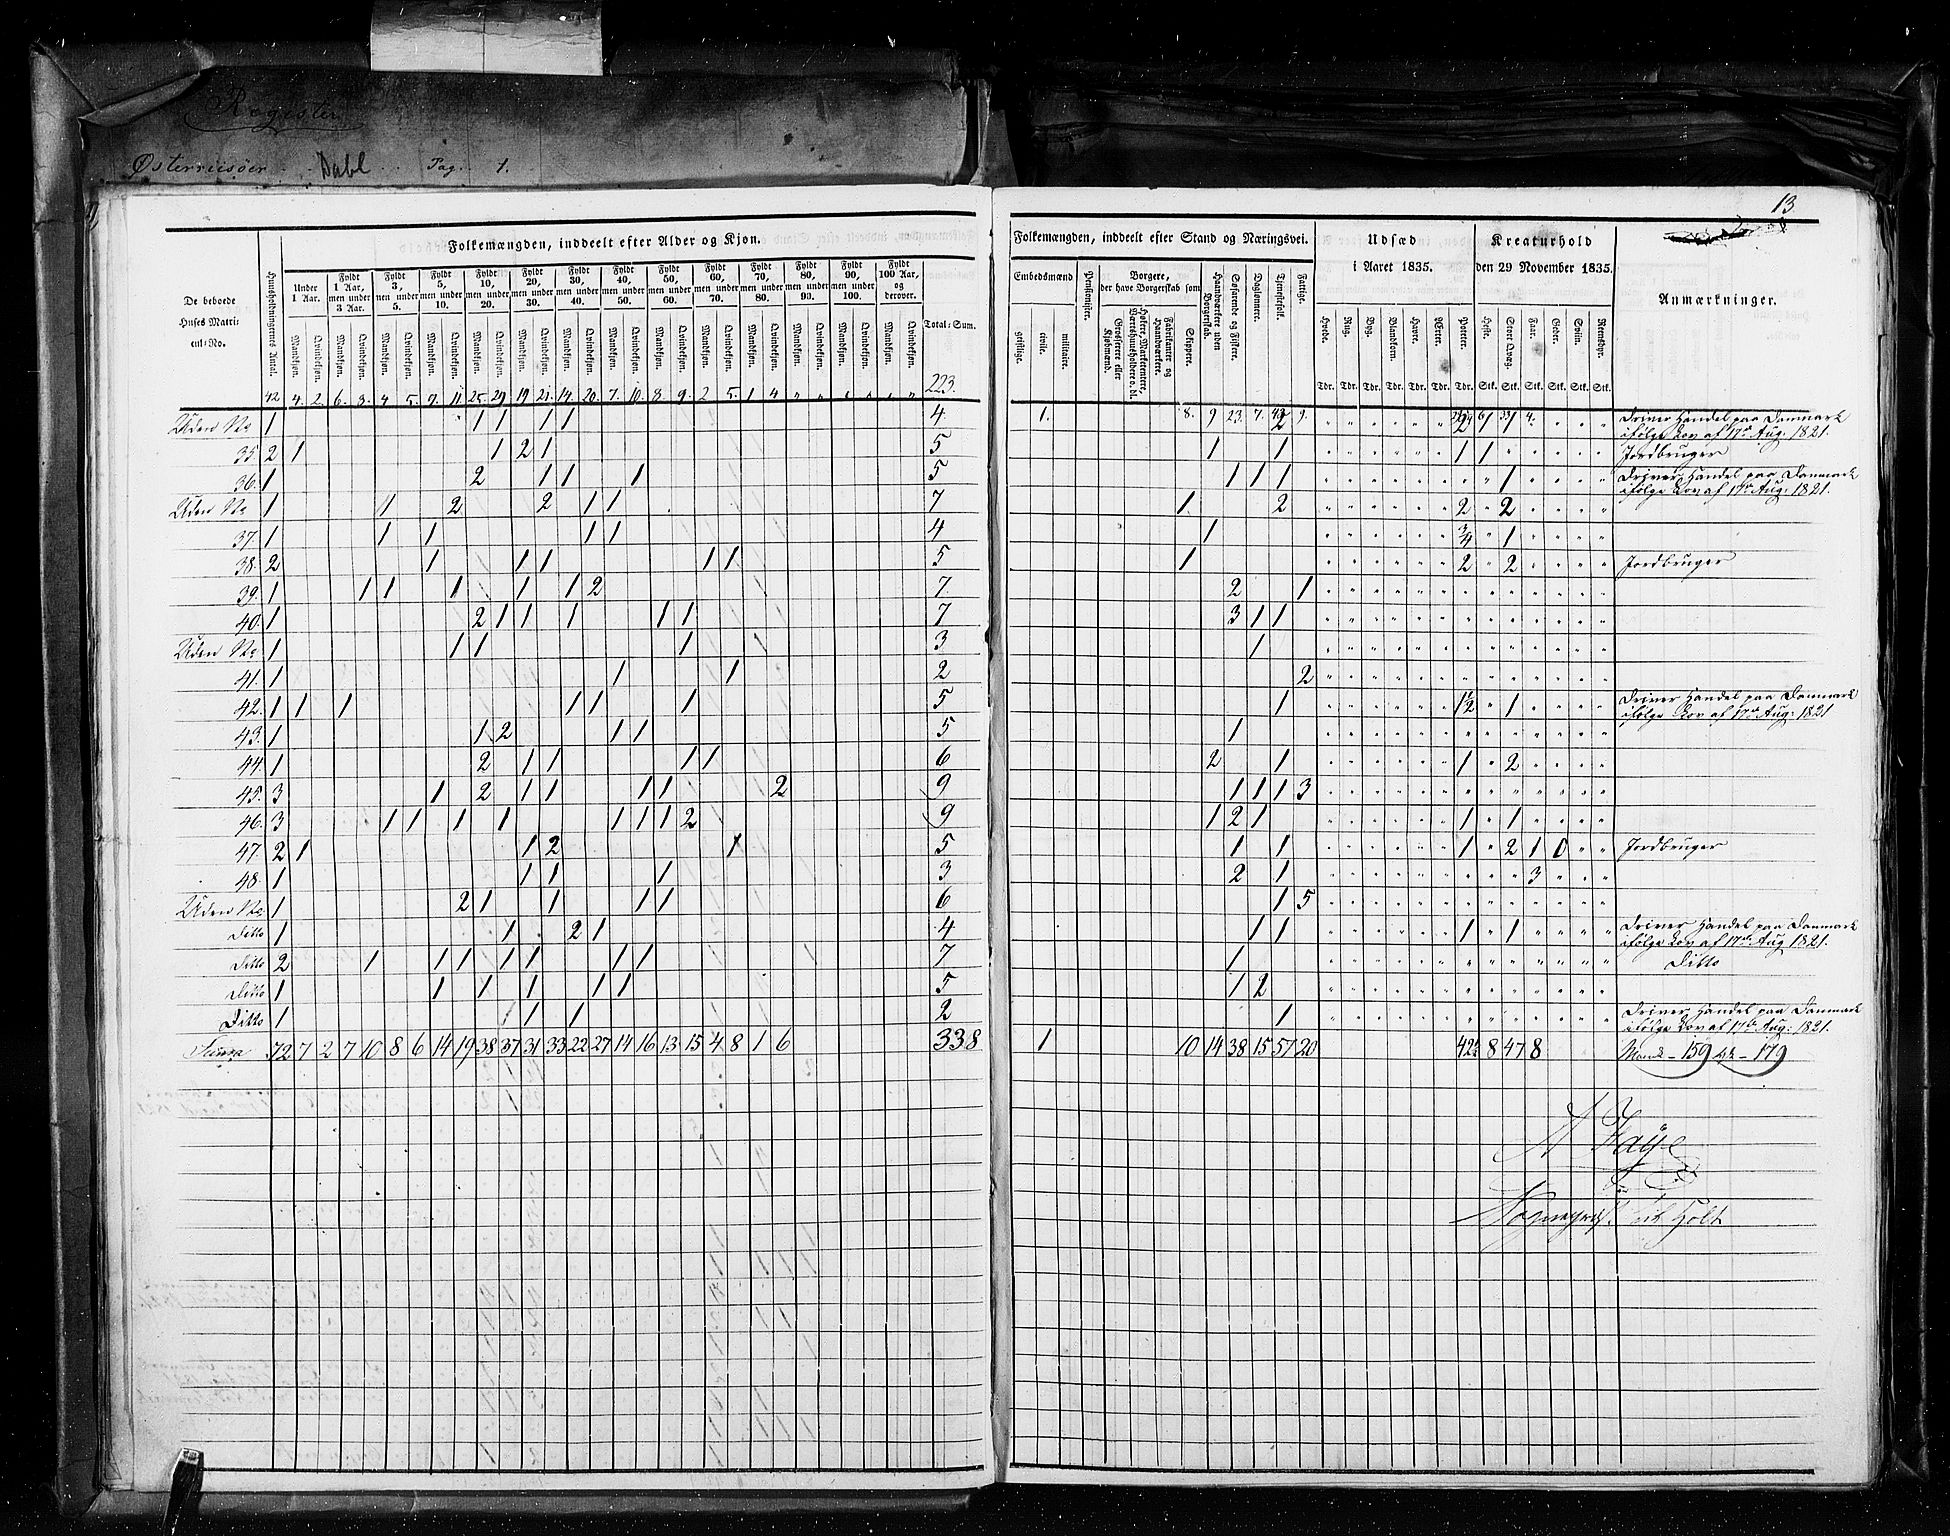 Register
Østerriisøer . . Dahl . . . Pag. . 1.
13
Folkemængden, inddeelt efter Alder og Kjøn.
De beboede Huses Matricul-No.
Huusholdningernes Antal.
Under 1 Aar.
Fyldt 1 Aar, men under 3 Aar.
Fyldt 3, men under 5.
Fyldt 5, men under 10.
Fyldt 10, men under 20.
Fyldt 20, men under 30.
Fyldt 30, men under 40.
Fyldt 40, men under 50.
Fyldt 50, men under 60.
Fyldt 60, men under 70.
Fyldt 70, men under 80.
Fyldt 80, men under 90.
Fyldt 90, men under 100.
Fyldt 100 Aar, og derover.
Total-Sum.
Mandkjøn. Qvindekjøn. Mandkjøn. Qvindekjøn. Mandkjøn. Qvindekjøn. Mandkjøn. Qvindekjøn. Mandkjøn. Qvindekjøn. Mandkjøn. Qvindekjøn. Mandkjøn. Qvindekjøn. Mandkjøn. Qvindekjøn. Mandkjøn. Qvindekjøn. Mandkjøn. Qvindekjøn. Mandkjøn. Qvindekjøn. Mandkjøn. Qvindekjøn. Mandkjøn. Qvindekjøn. Mandkjøn. Qvindekjøn.
42 4. 2. 6. 8. 4 5. 9. 11. 25. 29 19 21. 14. 20. 7. 10. 8. 9. 2 5. 1 4 " " " " " " 223.
Uden No 1 1 1 1 1 4
35 2 1 1 2 1 5
36. 1 2 1 1 1 5
Uden No 1 1 2 2 1 1 7
37. 1 1 1 1 1 4
38. 2 1 1 1 1 1 5
39. 1 1 1 1 1 1 2 7
40. 1 2 1 1 1 1 1 7
Uden No 1 1 1 1 3
41. 1 1 1 2
42. 1 1 1 1 1 1 5
43. 1 1 2 1 1 5
44. 1 2 1 1 1 1 6
45. 3 1 2 1 1 1 1 2 9
46. 3 1 1 1 1 1 1 1 2 9
47. 2 1 1 2 1 5
48. 1 1 1 1 3
Uden No. 1 2 1 1 1 1 6
Ditto 1 1 2 1 4
Ditto 2 1 1 1 1 1 1 1 7
Ditto 1 1 1 1 1 1 5
Ditto 1 1 1 2
Summa 72 7 2 7 10 8 6 14 19 38 37 31 33 22 27 14 16 13 15 4 8 1 6 338
Folkemængden, inddeelt efter Stand og Næringsvei.
Embedsmænd
geistlige. civile. militaire.
Pensionister.
Borgere, der have Borgerskab som
Grosserere eller Kjøbmænd.
Høkere, Marketentere, Værtshuusholdere o. dl.
Fabrikanter og Haandværkere.
Skippere.
Haandværkere uden Borgerskab.
Søfarende og Fiskere.
Daglønnere.
Tjenestefolk.
Fattige.
Udsæd i Aaret 1835.
Hvede. Rug. Byg. Blandkorn. Havre. Ærter. Poteter.
Tdr. Tdr. Tdr. Tdr. Tdr. Tdr. Tdr.
Kreaturhold den 29 November 1835.
Heste. Stort Qvæg. Faar. Geder. Sviin. Reensdyr.
Stk. Stk. Stk. Stk. Stk. Stk.
Anmærkninger.
1. 8. 9 23. 7. 9.
Driver Handel paa Danmark
ifølge Lov af 17de Aug: 1821.
1 1 1 1 Jordbruger
1 1 1 1 Driver Handel paa Danmark
ifølge Lov af 17de Aug: 1821.
1. 2 2 2
1 3/4 1
1 2 2 Jordbruger
2 1
3 1 1
1
2
1 1½ 1 Driver Handel paa Danmark
ifølge Lov af 17de Aug: 1821
1
2 1 1 2
1 1 1 3
1 2 1 1 1
1 1 1 2 1 0 Jordbruger
2 1 3
1 5
1 1 1 1 Driver Handel paa Danmark
ifølge Lov af 17de Aug 1821.
1 Ditto
1 2
1 Driver Handel paa Danmark
ifølge Lov af 17de Aug: 1821.
1 10 14 38 15 57 20 8 47 8 Mand - 159 Qk - 179
A Faye
Sognepræst til Holt